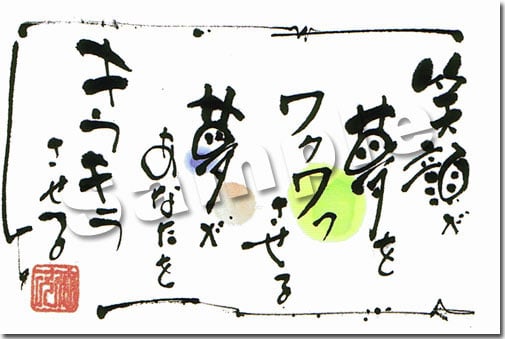 笑顔が
夢を
ワクワク
させる
夢が
あなたを
キラキラ
させる
Sample